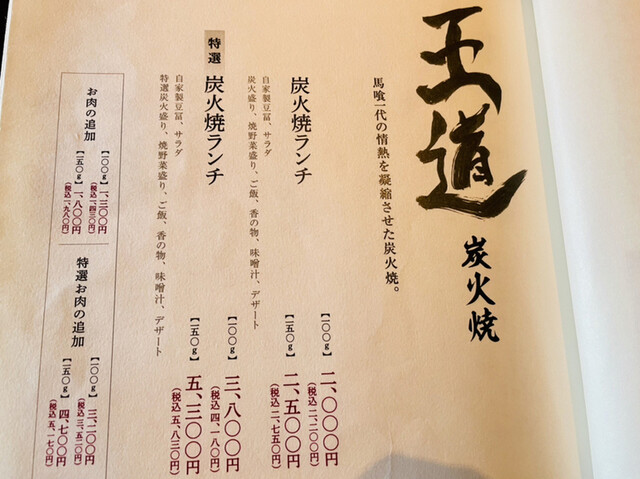 王道 炭火焼
馬喰一代の情熱を凝縮させた炭火焼。
炭火焼ランチ
自家製豆冨、サラダ
炭火盛り、焼野菜盛り、ご飯、香の物、味噌汁、デザート
【一〇〇g】 二、〇〇〇円
(税込 二、二〇〇円)
【一五〇g】 二、五〇〇円
(税込 二、七五〇円)
特選 炭火焼ランチ
自家製豆冨、サラダ
特選炭火盛り、焼野菜盛り、ご飯、香の物、味噌汁、デザート
【一〇〇g】 三、八〇〇円
(税込 四、一八〇円)
【一五〇g】 五、三〇〇円
(税込 五、八三〇円)
お肉の追加
【一〇〇g】 一、三〇〇円
(税込 一、四三〇円)
【一五〇g】 一、八〇〇円
(税込 一、九八〇円)
特選お肉の追加
【一〇〇g】 三、二〇〇円
(税込 三、五二〇円)
【一五〇g】 四、七〇〇円
(税込 五、一七〇円)